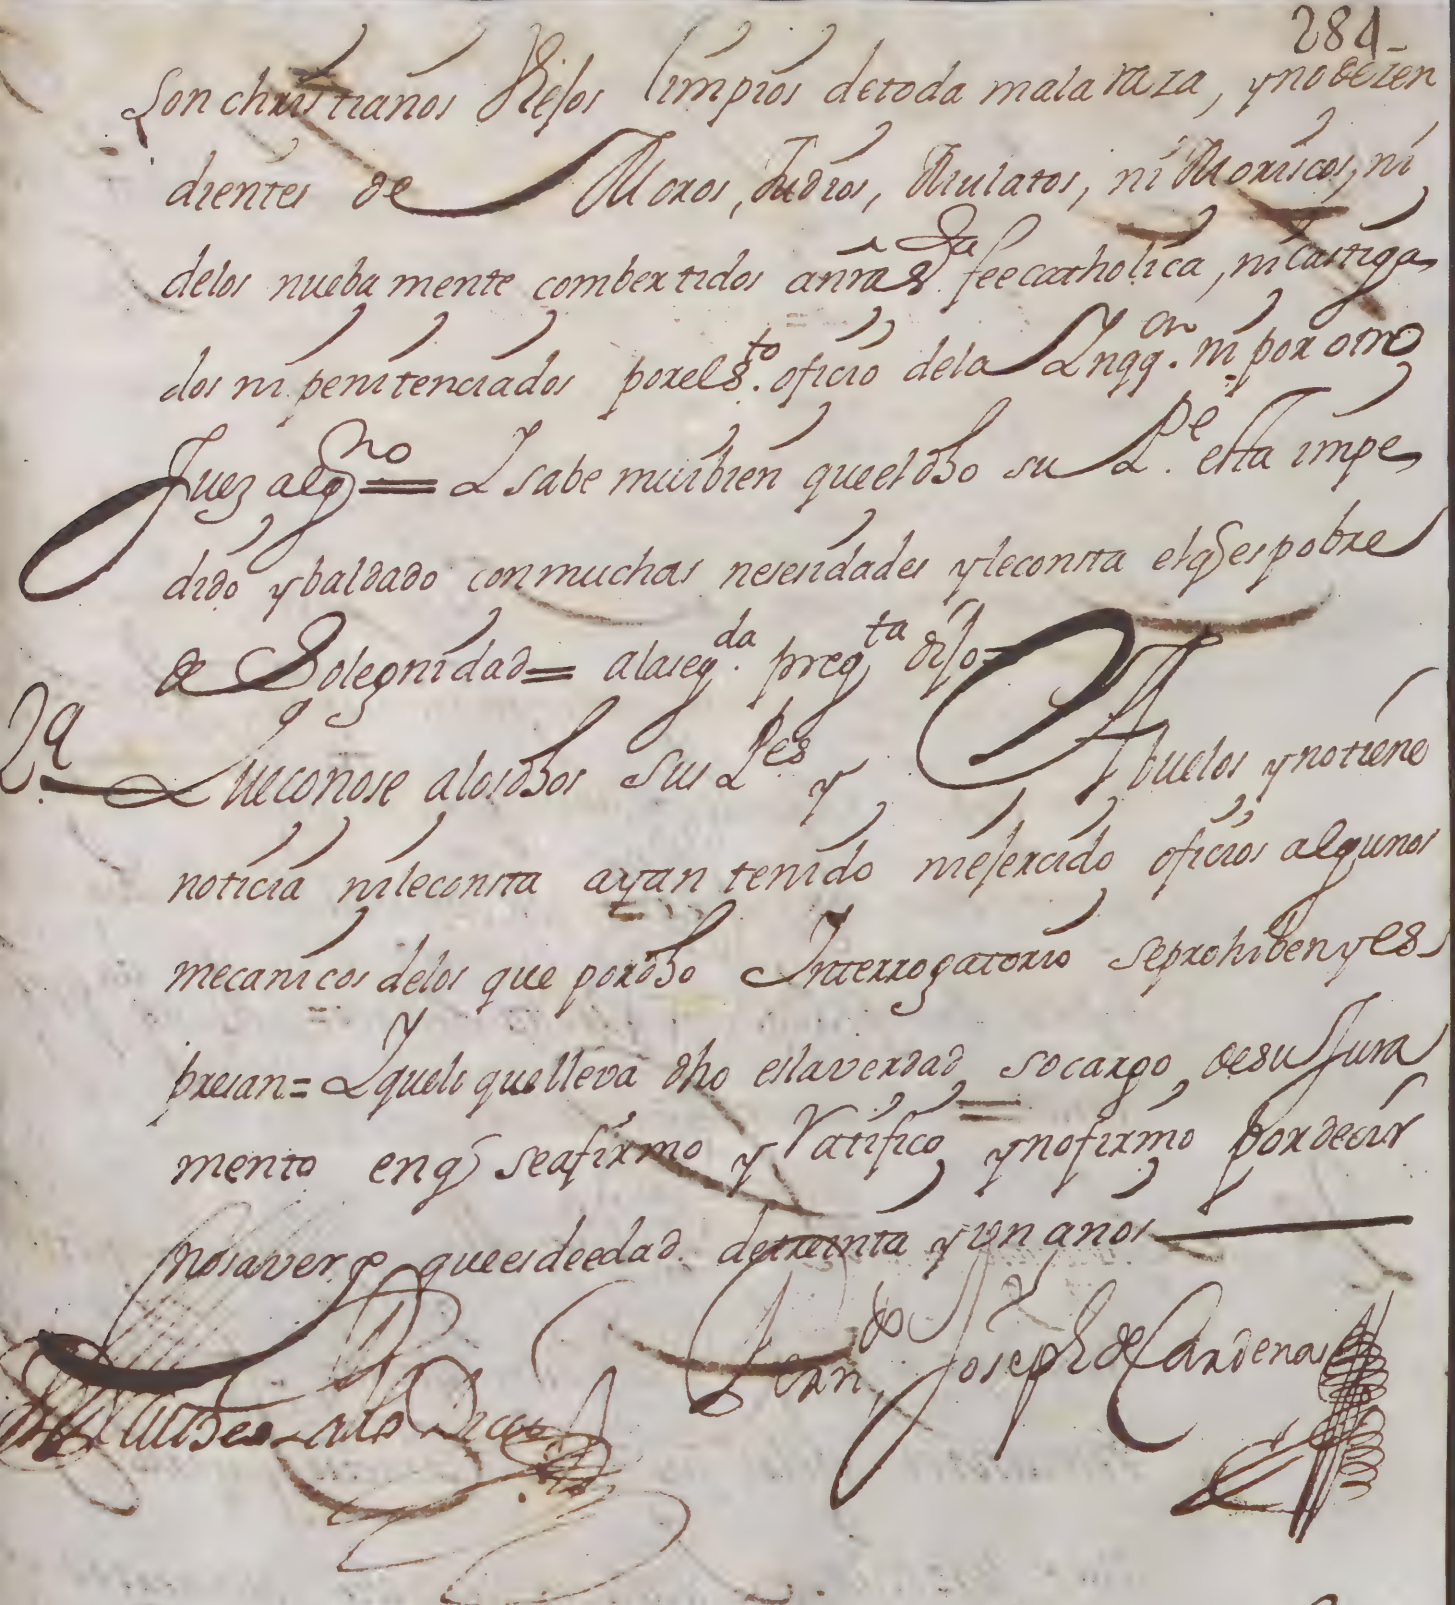 284
Son christianos Viejos limpios detoda mala raza, y no dezen
dientes de Moros, Judios, Mulatos, ni Moriscos, ni
delos nueba mente combertidos anra Sta fee catholica, ni Castiga
dos ni penitenciados por el Sto oficio dela Inqqon. ni por otro
Juez algno = Y sabe mui bien que el dho su Pe. esta impe
dido y baldado con muchas nesesidades y le consta el q es pobre
de Solegnidad = ala segda. pregta dijo
2a Que conose alos dhos sus Pes y Abuelos y no tiene
noticia ni le consta ayan tenido ni ejercido oficios algunos
mecanicos delos que por dho Interrogatorio se prohiben y es
presan = Y que lo que lleva dho es la verdad so cargo de su Jura
mento en q se afirmo y Ratifico y no firmo por decir
no saver y que es de edad de treinta y un anos
Ferndo Joseph de Cardenas